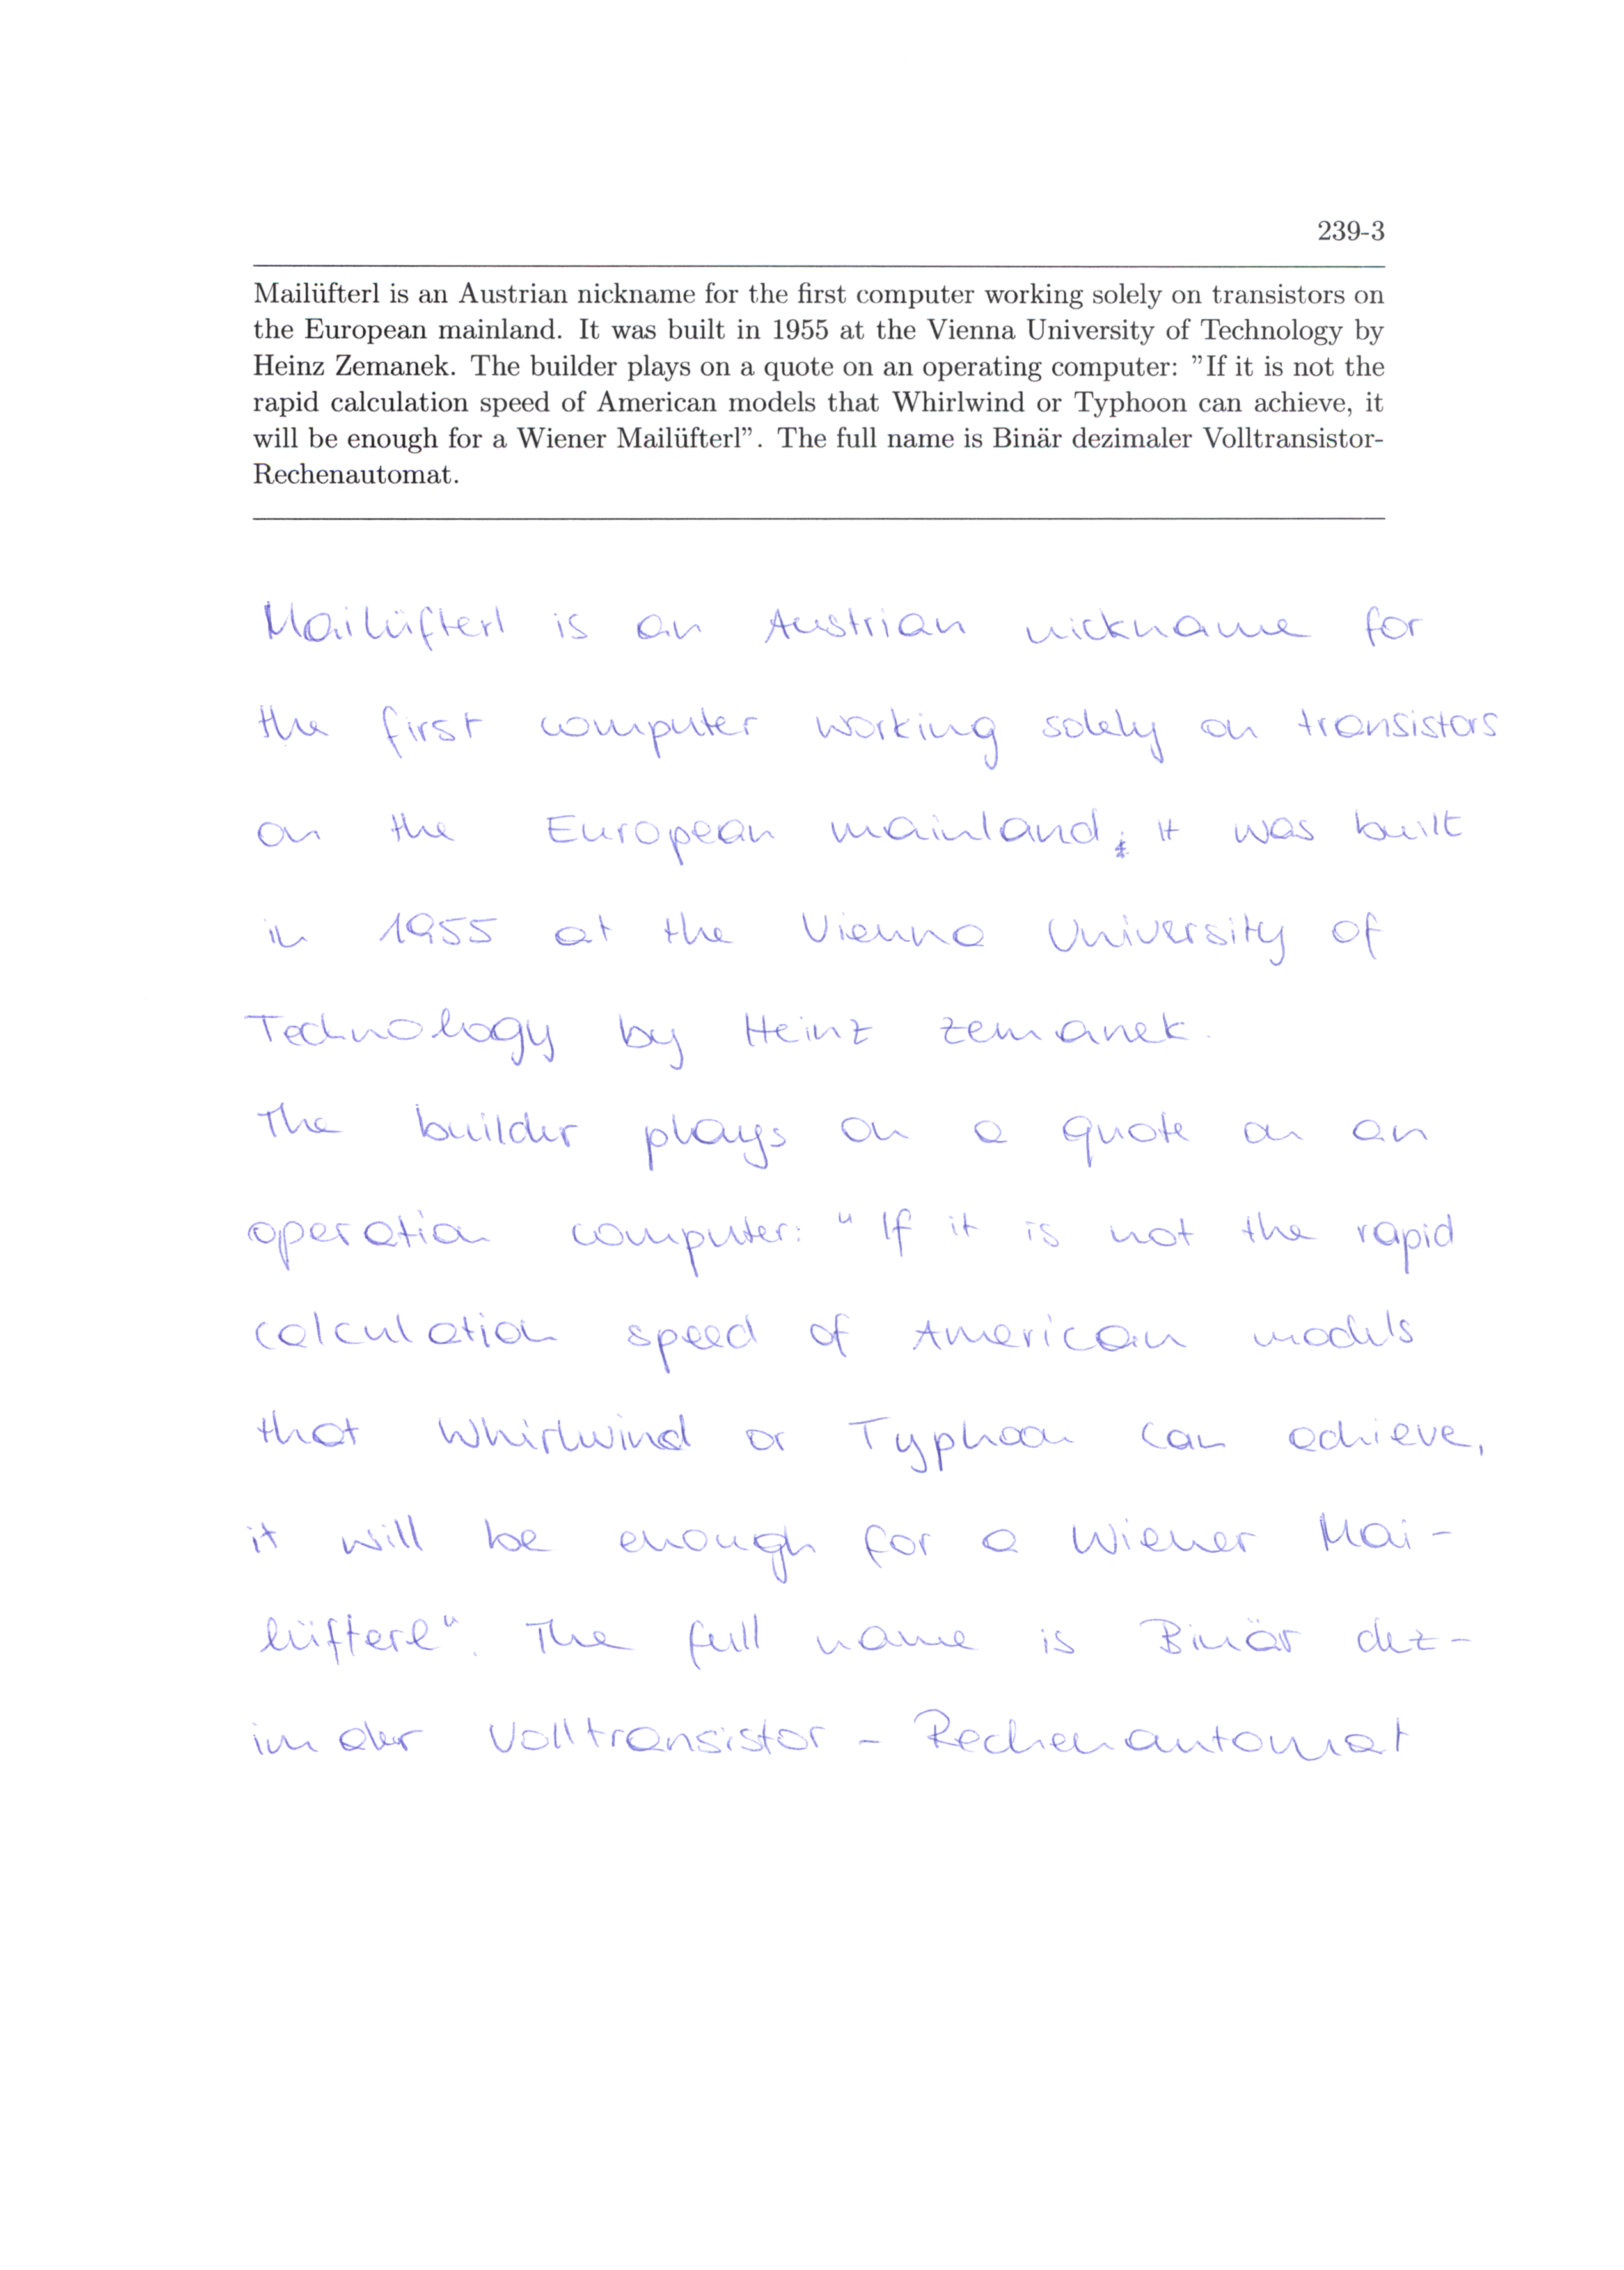 239-3
Mailüfterl is an Austrian nickname for the first computer working solely on transistors on
the European mainland. It was built in 1955 at the Vienna University of Technology by
Heinz Zemanek. The builder plays on a quote on an operating computer: ”If it is not the
rapid calculation speed of American models that Whirlwind or Typhoon can achieve, it
will be enough for a Wiener Mailüfterl”. The full name is Binär dezimaler Volltransistor-
Rechenautomat.
Mailüfterl is an Austrian nickname for
the first computer working solely on transistors
on the European mainland; it was built
in 1955 at the Vienna University of
Technology by Heinz Zemanek.
The builder plays on a quote on an
operation computer: "If it is not the rapid
calculation speed of American models
that Whirlwind or Typhoon can achieve,
it will be enough for a Wiener Mai-
lüfterl". The full name is Binär dez-
imaler Volltransistor - Rechenautomat